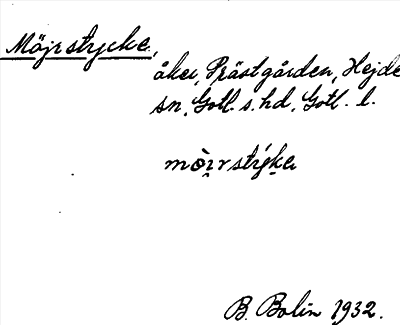 Möjrstycke,
åker, Prästgården, Hejde
sn, Gotl. s. hd, Gotl. l.
mò̤ɪrstýka
B. Bolin 1932.